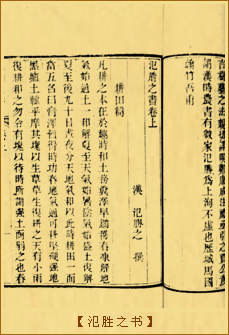 謂漢時農書有數家氾勝為上海不虛也歷城馬國
翰竹吾甫
氾勝之書卷上
漢 氾勝之 撰
耕田篇
凡耕之本在於趣時和土務糞澤早鋤早穫春凍解地
氣始通土一和解夏至天氣始暑陰氣始盛土復解
夏至後九十日晝夜分天地氣和以此時耕田一而
當五名曰膏澤皆得時功春地氣通可耕堅硬強地
黑壚土輒平摩其塊以生草草生復耕之天有小雨
復耕和之勿令有塊以待時所謂強土而弱之也春
【氾胜之书】